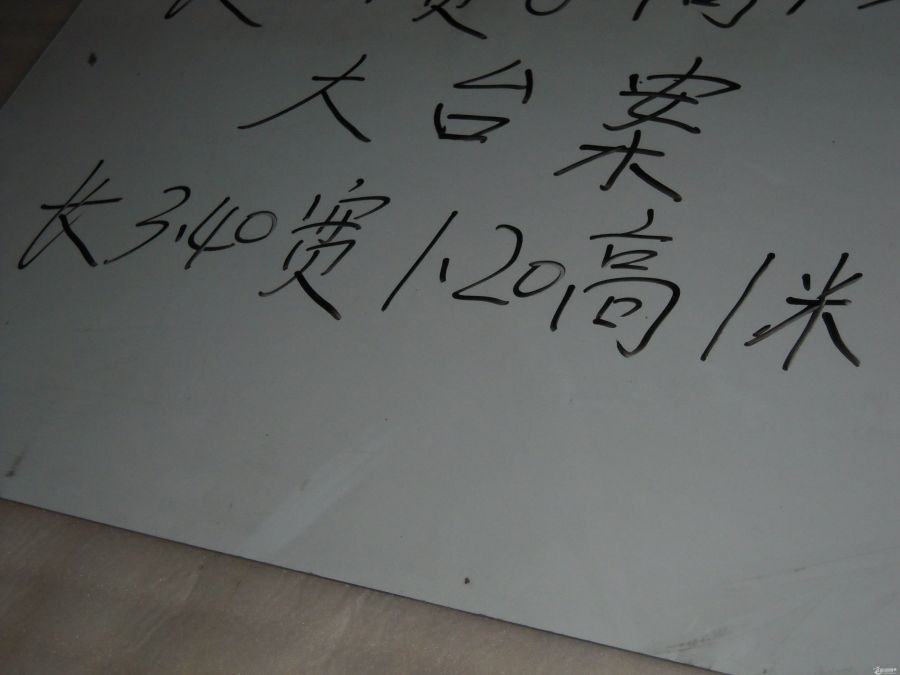 大台案
长3.40宽1.20高1米